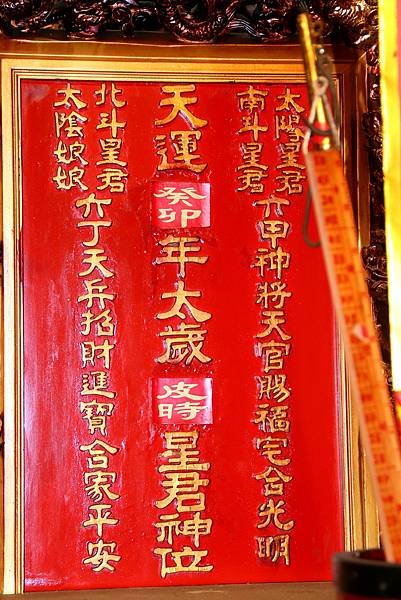 太陽星君
南斗星君
六甲神將天官賜福宅舍光明
天運癸卯年太歲皮時星君神位
北斗星君
太陰娘娘
六丁天兵招財進寶合家平安